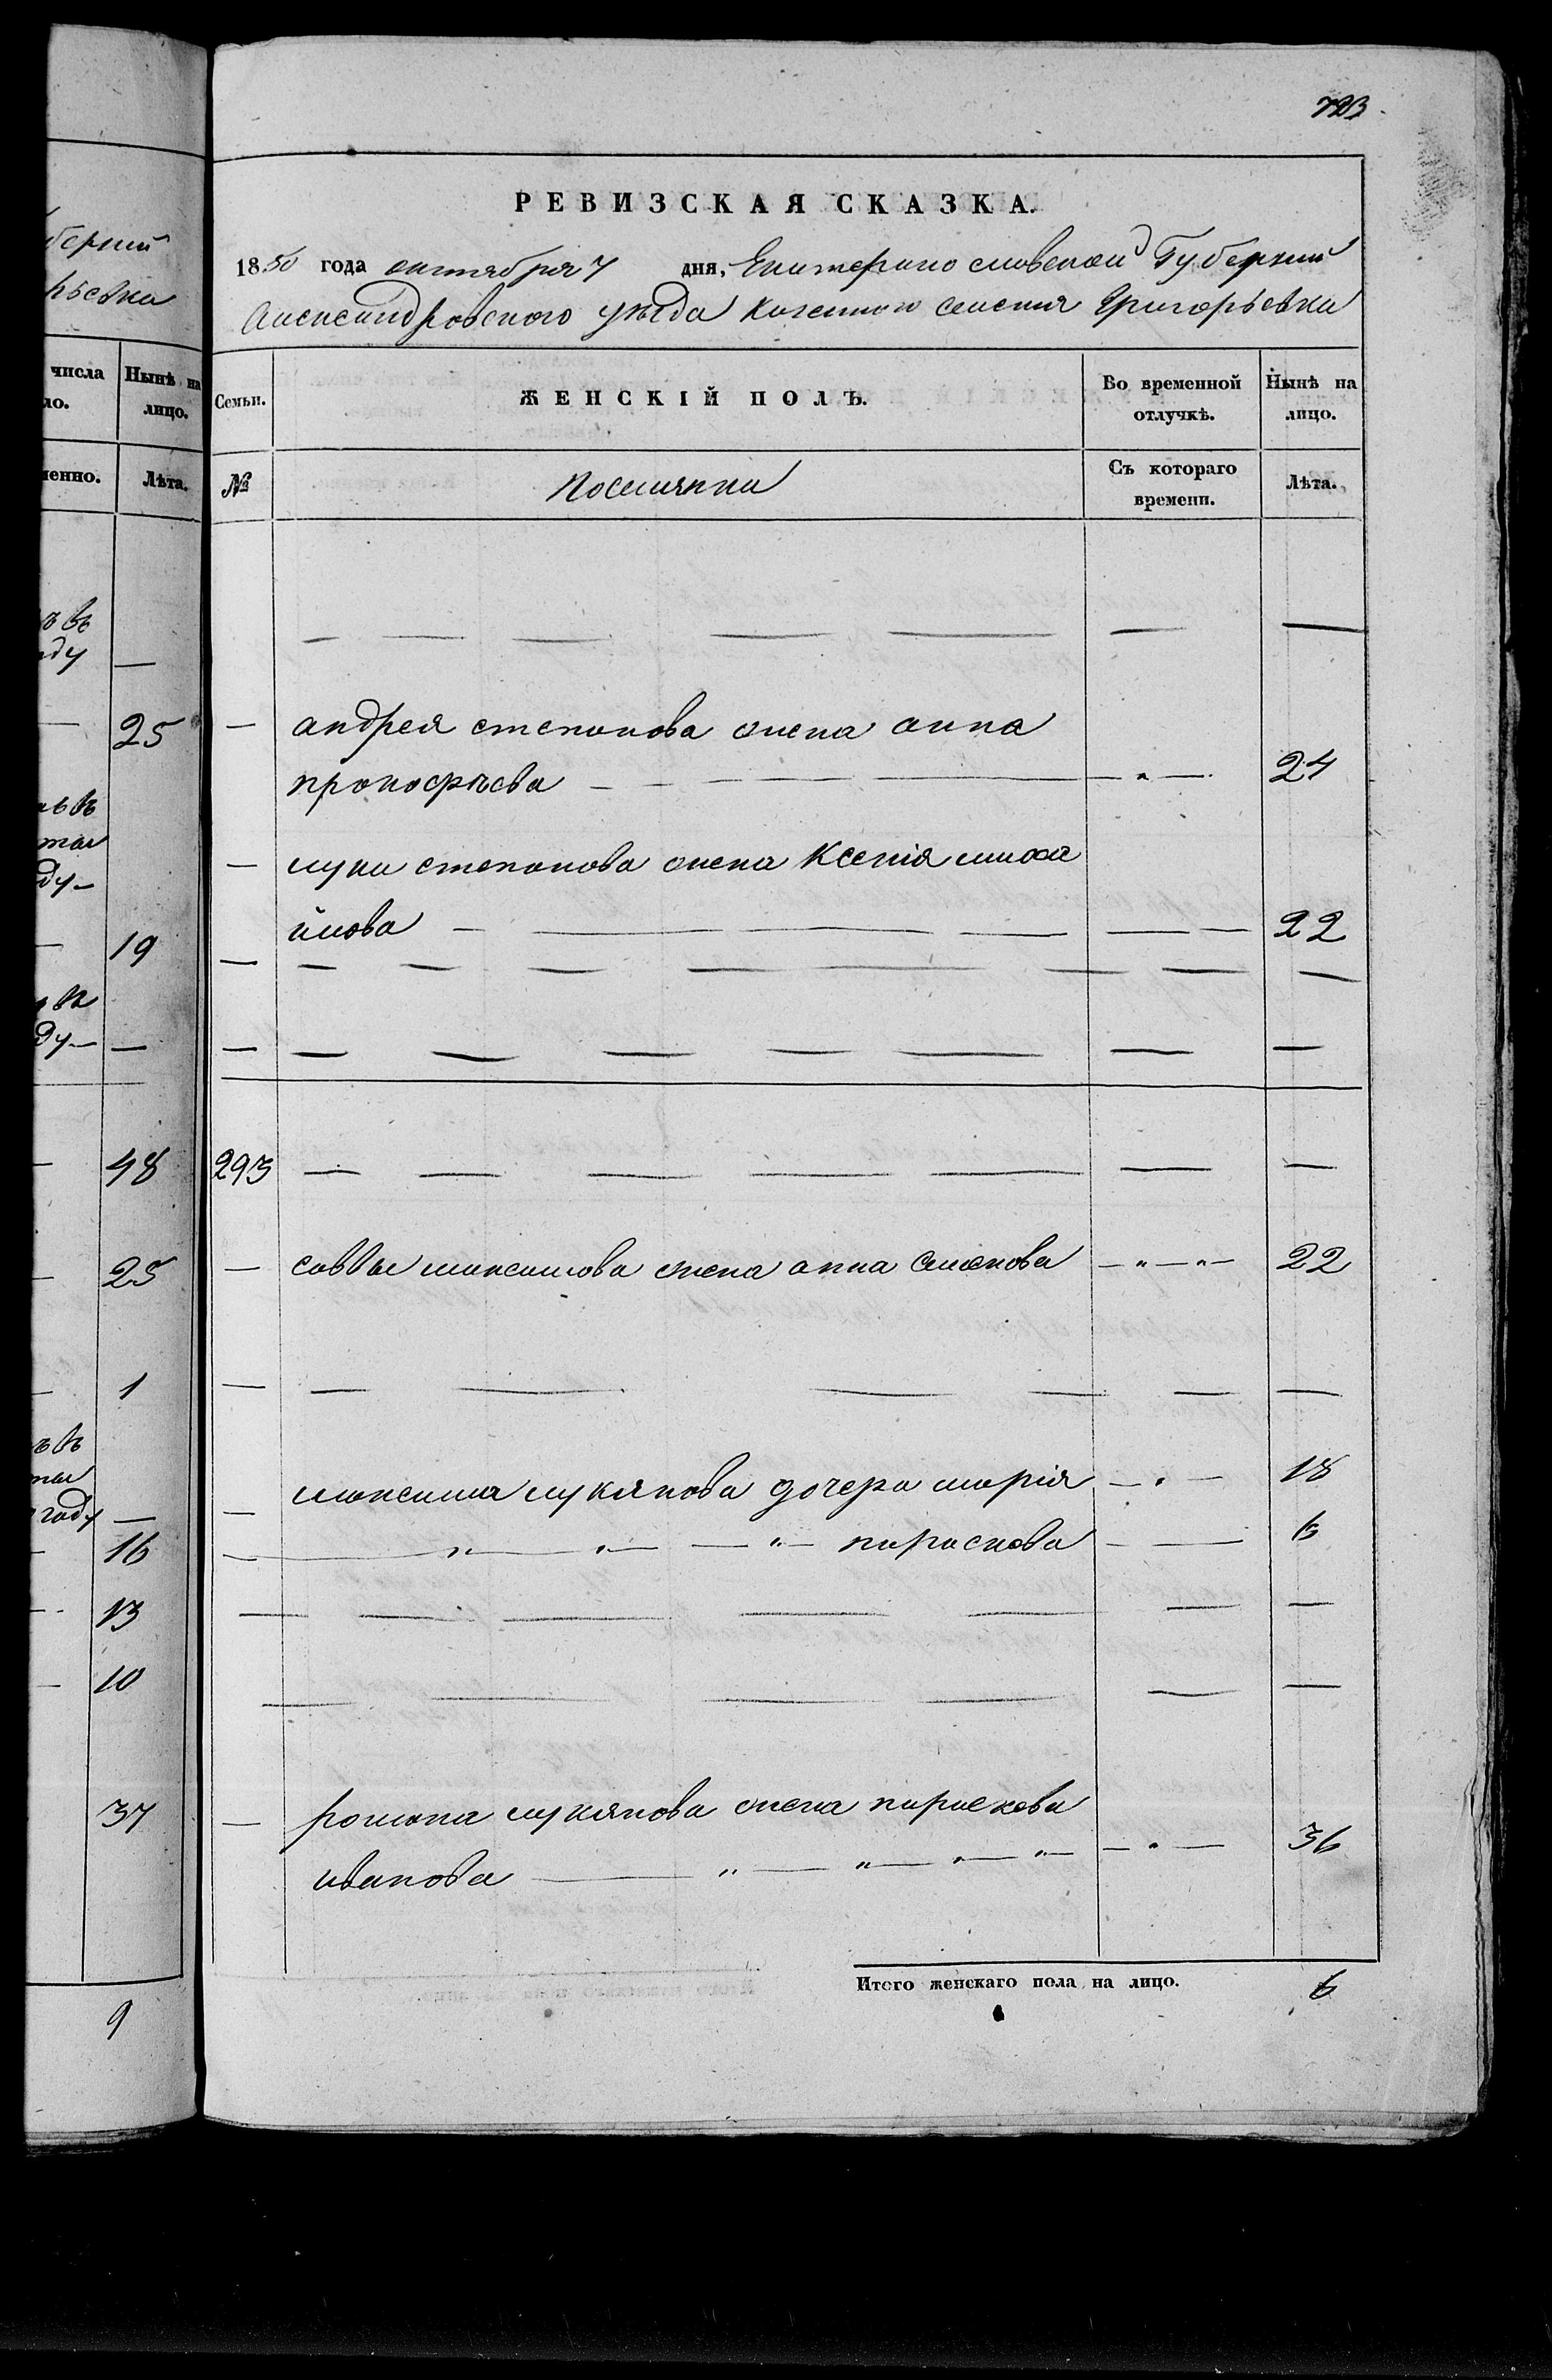 723
РЕВИЗСКАЯ СКАЗКА.
1850 года октября 7 дня, Екатеринославской Губернии
Александровского уезда казенного селения Григорьевки
Семьи. ЖЕНСКІЙ ПОЛЪ. Во временной отлучкѣ. Нынѣ на лицо.
№ Поселянки Съ котораго времени. Лѣта.
андрея степанова жена анна
прокофьева 24
луки степанова жена Ксенія миха
йлова 22
293
саввы максимова жена анна семенова 22
максима лукянова дочера марія 18
" " " параскова 6
романа лукянова жена параскова
иванова " " " " 36
Итого женскаго пола на лицо. 6
берніи
рьевки
числа Нынѣ на лицо.
ло.
менно. Лѣта.
ъ въ
аду
25
ду
19
ду
48
25
1
году
16
13
10
37
9